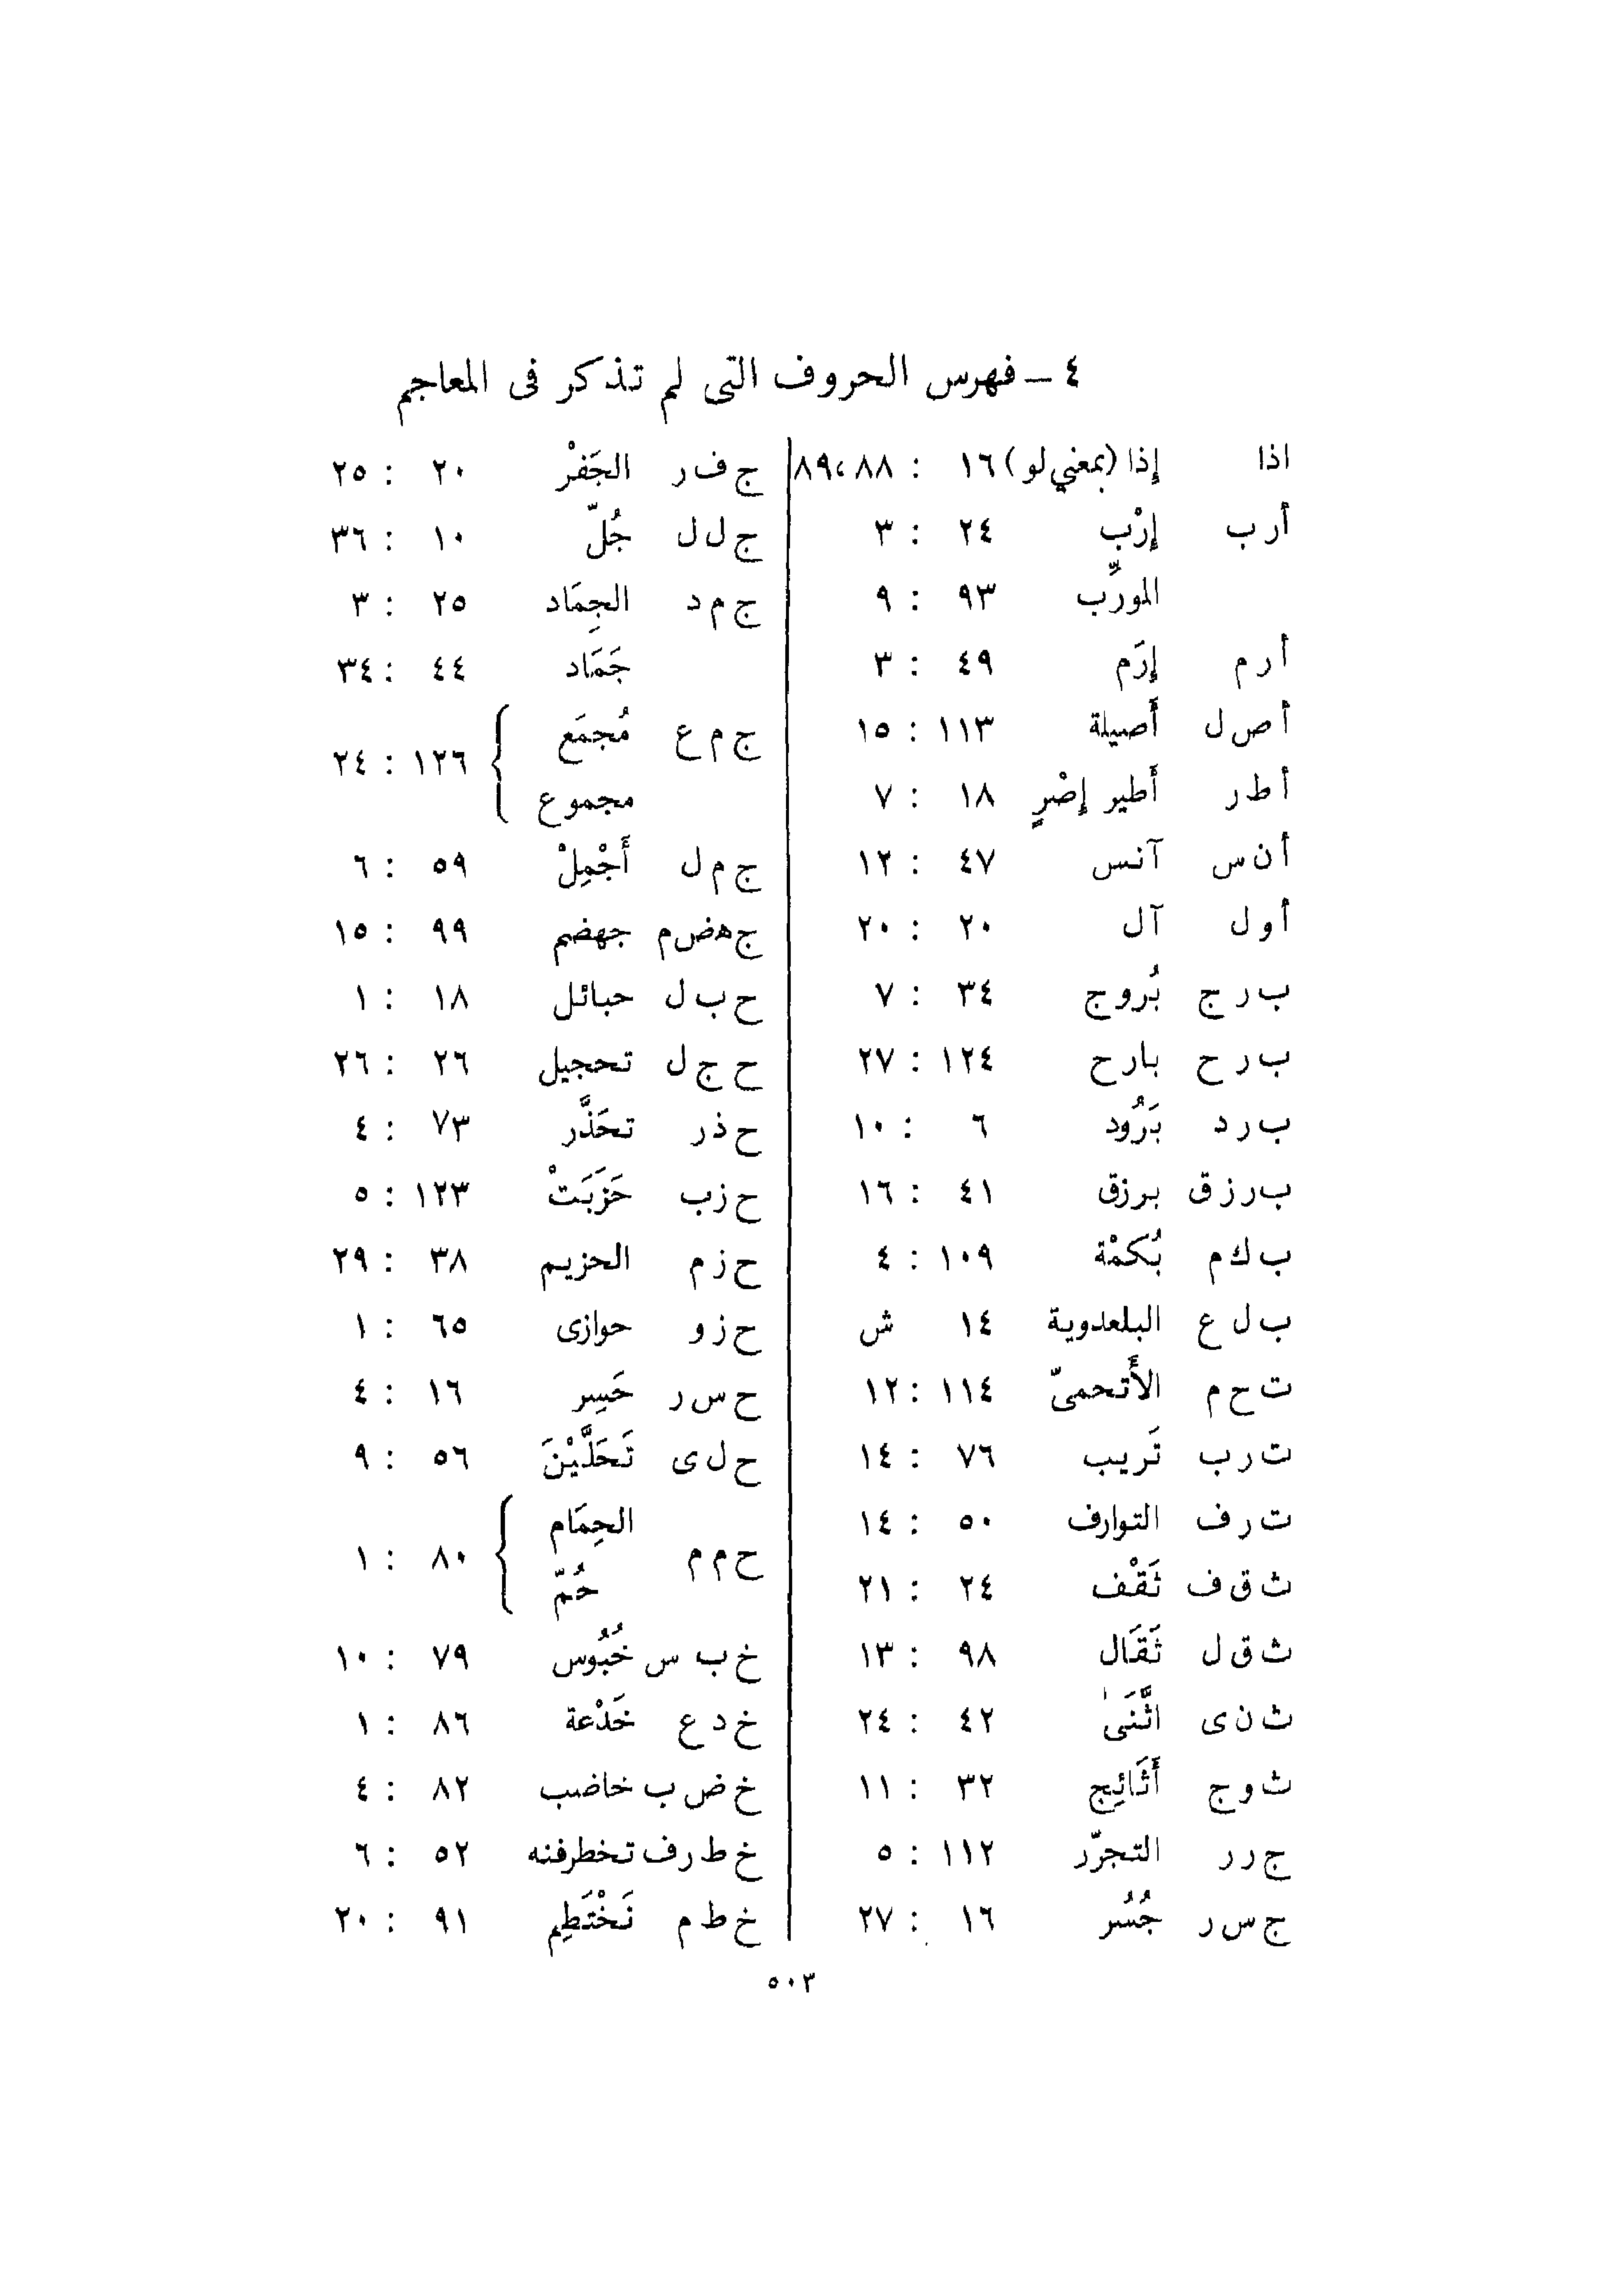 ٤ – فهرس الحروف التى لم تذكر فى المعاجم
اذا إذا (بمعني لو) ١٦ : ٨٨، ٨٩
أ ر ب إرْب ٢٤ : ٣
المورَّب ٩٣ : ٩
أ ر م إرَم ٤٩ : ٣
أ ص ل أَصيلة ١١٣ : ١٥
أ ط ر أَطير إصْرٍ ١٨ : ٧
أ ن س آنس ٤٧ : ١٢
أ و ل آل ٢٠ : ٢٠
ب ر ج بُروج ٣٤ : ٧
ب ر ح بارح ١٢٤ : ٢٧
ب ر د بَرُود ٦ : ١٠
ب ر ز ق برزق ٤١ : ١٦
ب ك م بُكمْة ١٠٩ : ٤
ب ل ع البلعدوية ١٤ ش
ت ح م الأَتحمىّ ١١٤ : ١٢
ت ر ب تَريب ٧٦ : ١٤
ت ر ف التوارف ٥٠ : ١٤
ث ق ف ثَقْف ٢٤ : ٢١
ث ق ل ثَقَال ٩٨ : ١٣
ث ن ى اثَّنَىٰ ٤٢ : ٢٤
ث و ج أَثَائِج ٣٢ : ١١
ج ر ر التجرّر ١١٢ : ٥
ج س ر جُسُر ١٦ : ٢٧
ج ف ر الجَفْر ٢٠ : ٢٥
ج ل ل جُلّ ١٠ : ٣٦
ج م د الجِمَاد ٢٥ : ٣
جَمَاد ٤٤ : ٣٤
ج م ع مُجمَع
مجموع } ١٢٦ : ٢٤
ج م ل أَجْمِلْ ٥٩ : ٦
ج هـ ض م جهضم ٩٩ : ١٥
ح ب ل حبائل ١٨ : ١
ح ج ل تحجيل ٢٦ : ٢٦
ح ذ ر تحَذَّر ٧٣ : ٤
ح ز ب حَزَبَتْ ١٢٣ : ٥
ح ز م الحزيم ٣٨ : ٢٩
ح ز و حوازى ٦٥ : ١
ح س ر حَسِر ١٦ : ٤
ح ل ى تَحَلَّيْنَ ٥٦ : ٩
ح م م الحِمَام
حُمّ } ٨٠ : ١
خ ب س خُبُوس ٧٩ : ١٠
خ د ع خَدْعة ٨٦ : ١
خ ض ب خاضب ٨٢ : ٤
خ ط ر ف تخطرفنه ٥٢ : ٦
خ ط م نَخْتَطِم ٩١ : ٢٠
٥٠٣